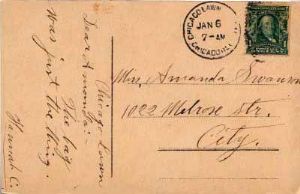 Chicago Lawn
Dear Amanda:-
The bag
was just the thing.
Hannah C.
CHICAGO LAWN
JAN 6
7-AM
CHICAGO, ILL.
Mrs. Amanda Swanson
1022 Melrose Str.
City.